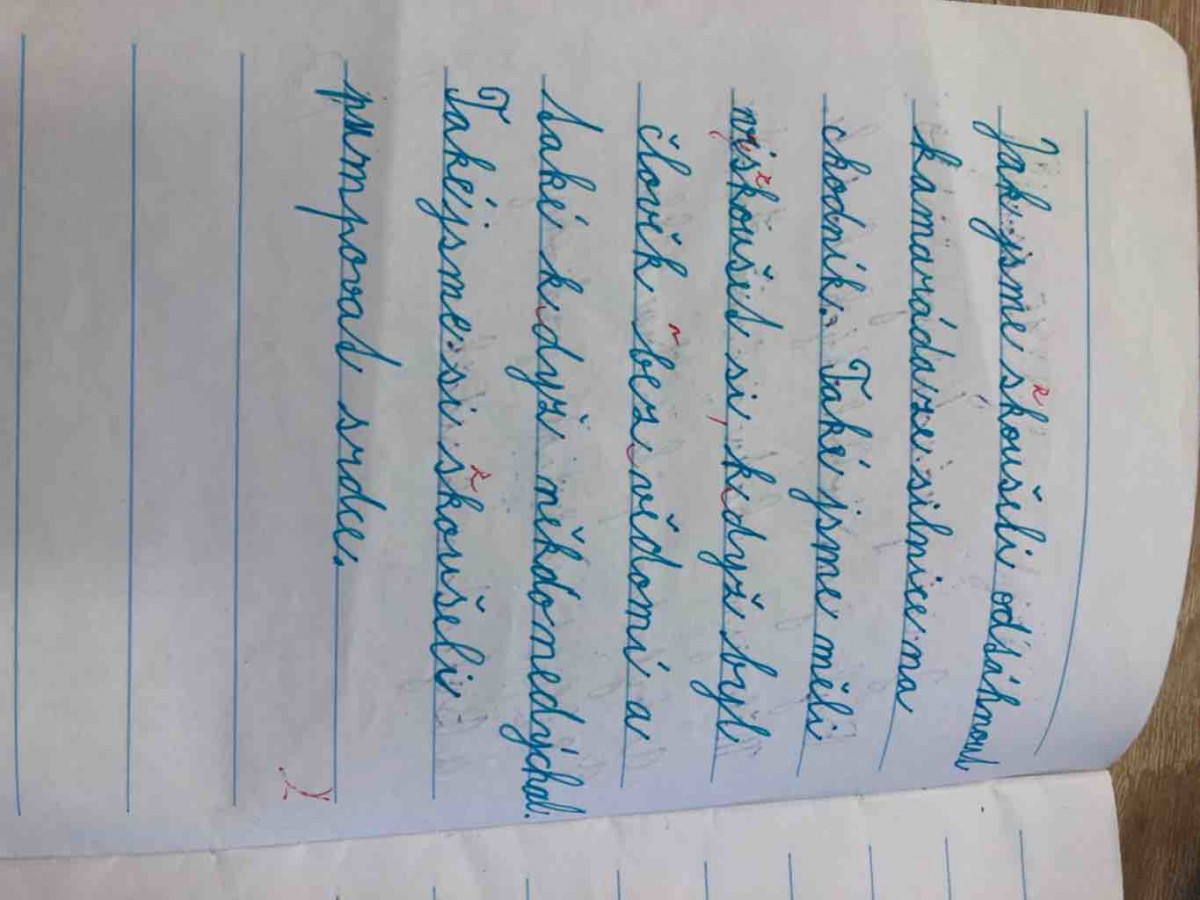 Jak jsme skoušeli odsáhnout
kamaráda ze silnice na
chodník. Také jsme měli
si, když byl
člověk bez vědomí a
také když někdo nedýchal.
Také jsme si skoušeli
pumpovat srdce.